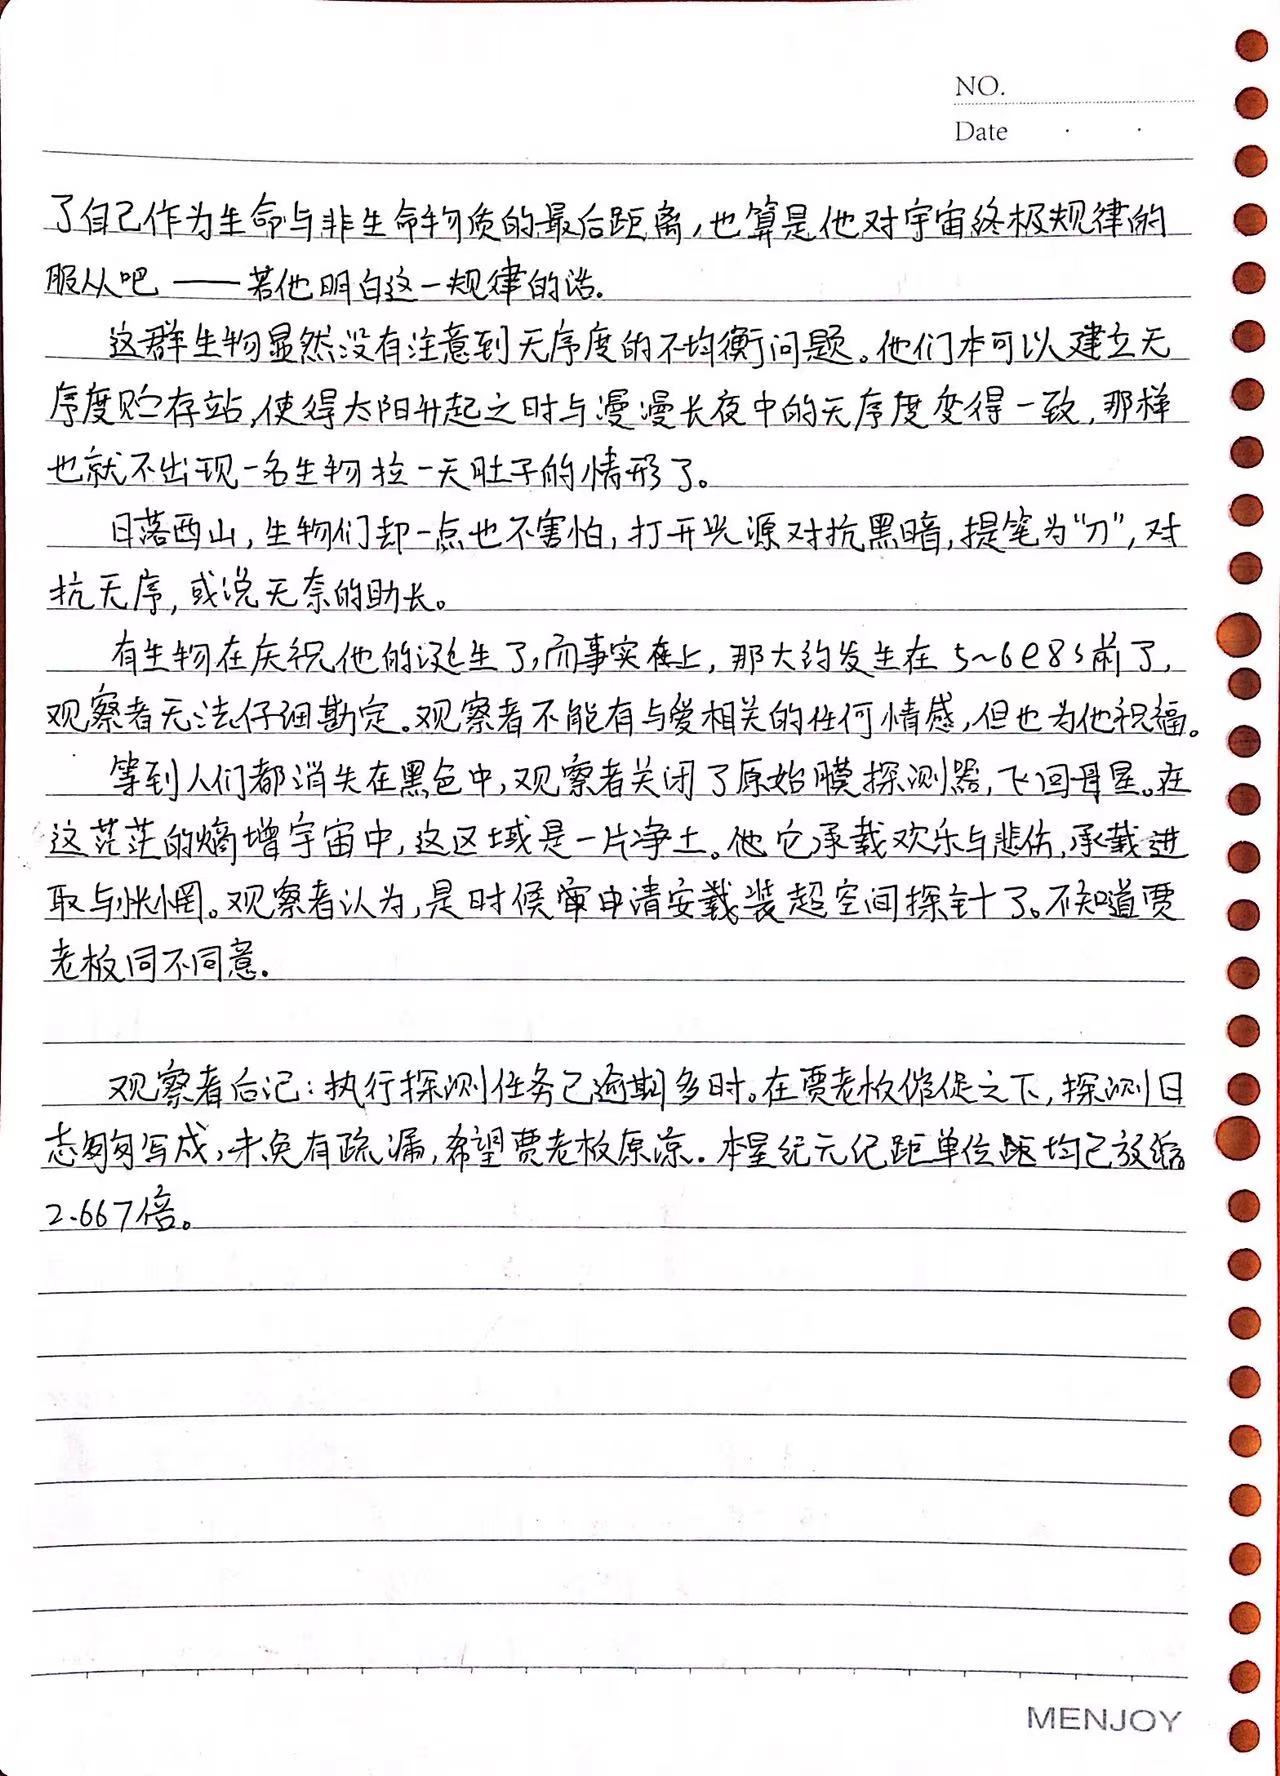 NO.
Date
了自己作为生命与非生命物质的最后距离,也算是他对宇宙终极规律的
服从吧——若他明白这一规律的话.
这群生物显然没有注意到无序度的不均衡问题。他们本可以建立无
序度贮存站,使得太阳升起之时与漫漫长夜中的无序度变得一致,那样
也就不出现一名生物拉一天肚子的情形了。
日落西山,生物们却一点也不害怕,打开光源对抗黑暗,提笔为“刀”,对
抗无序,或说无奈的助长。
有生物在庆祝他的诞生了,而事实上,那大约发生在5~6e8s前了,
观察者无法仔细勘定。观察者不能有与爱相关的任何情感,但也为他祝福。
等到人们都消失在黑色中,观察者关闭了原始膜探测器,飞回母星。在
这茫茫的熵增宇宙中,这区域是一片净土。它承载欢乐与悲伤,承载进
取与惘。观察者认为,是时候申请安装超空间探针了。不知道贾
老板同不同意.
观察者后记:执行探测任务已逾期多时。在贾老板催促之下,探测日
志匆匆写成,未免有疏漏,希望贾老板原谅.本星纪元记距单位均已放缩
2.667倍。
MENJOY